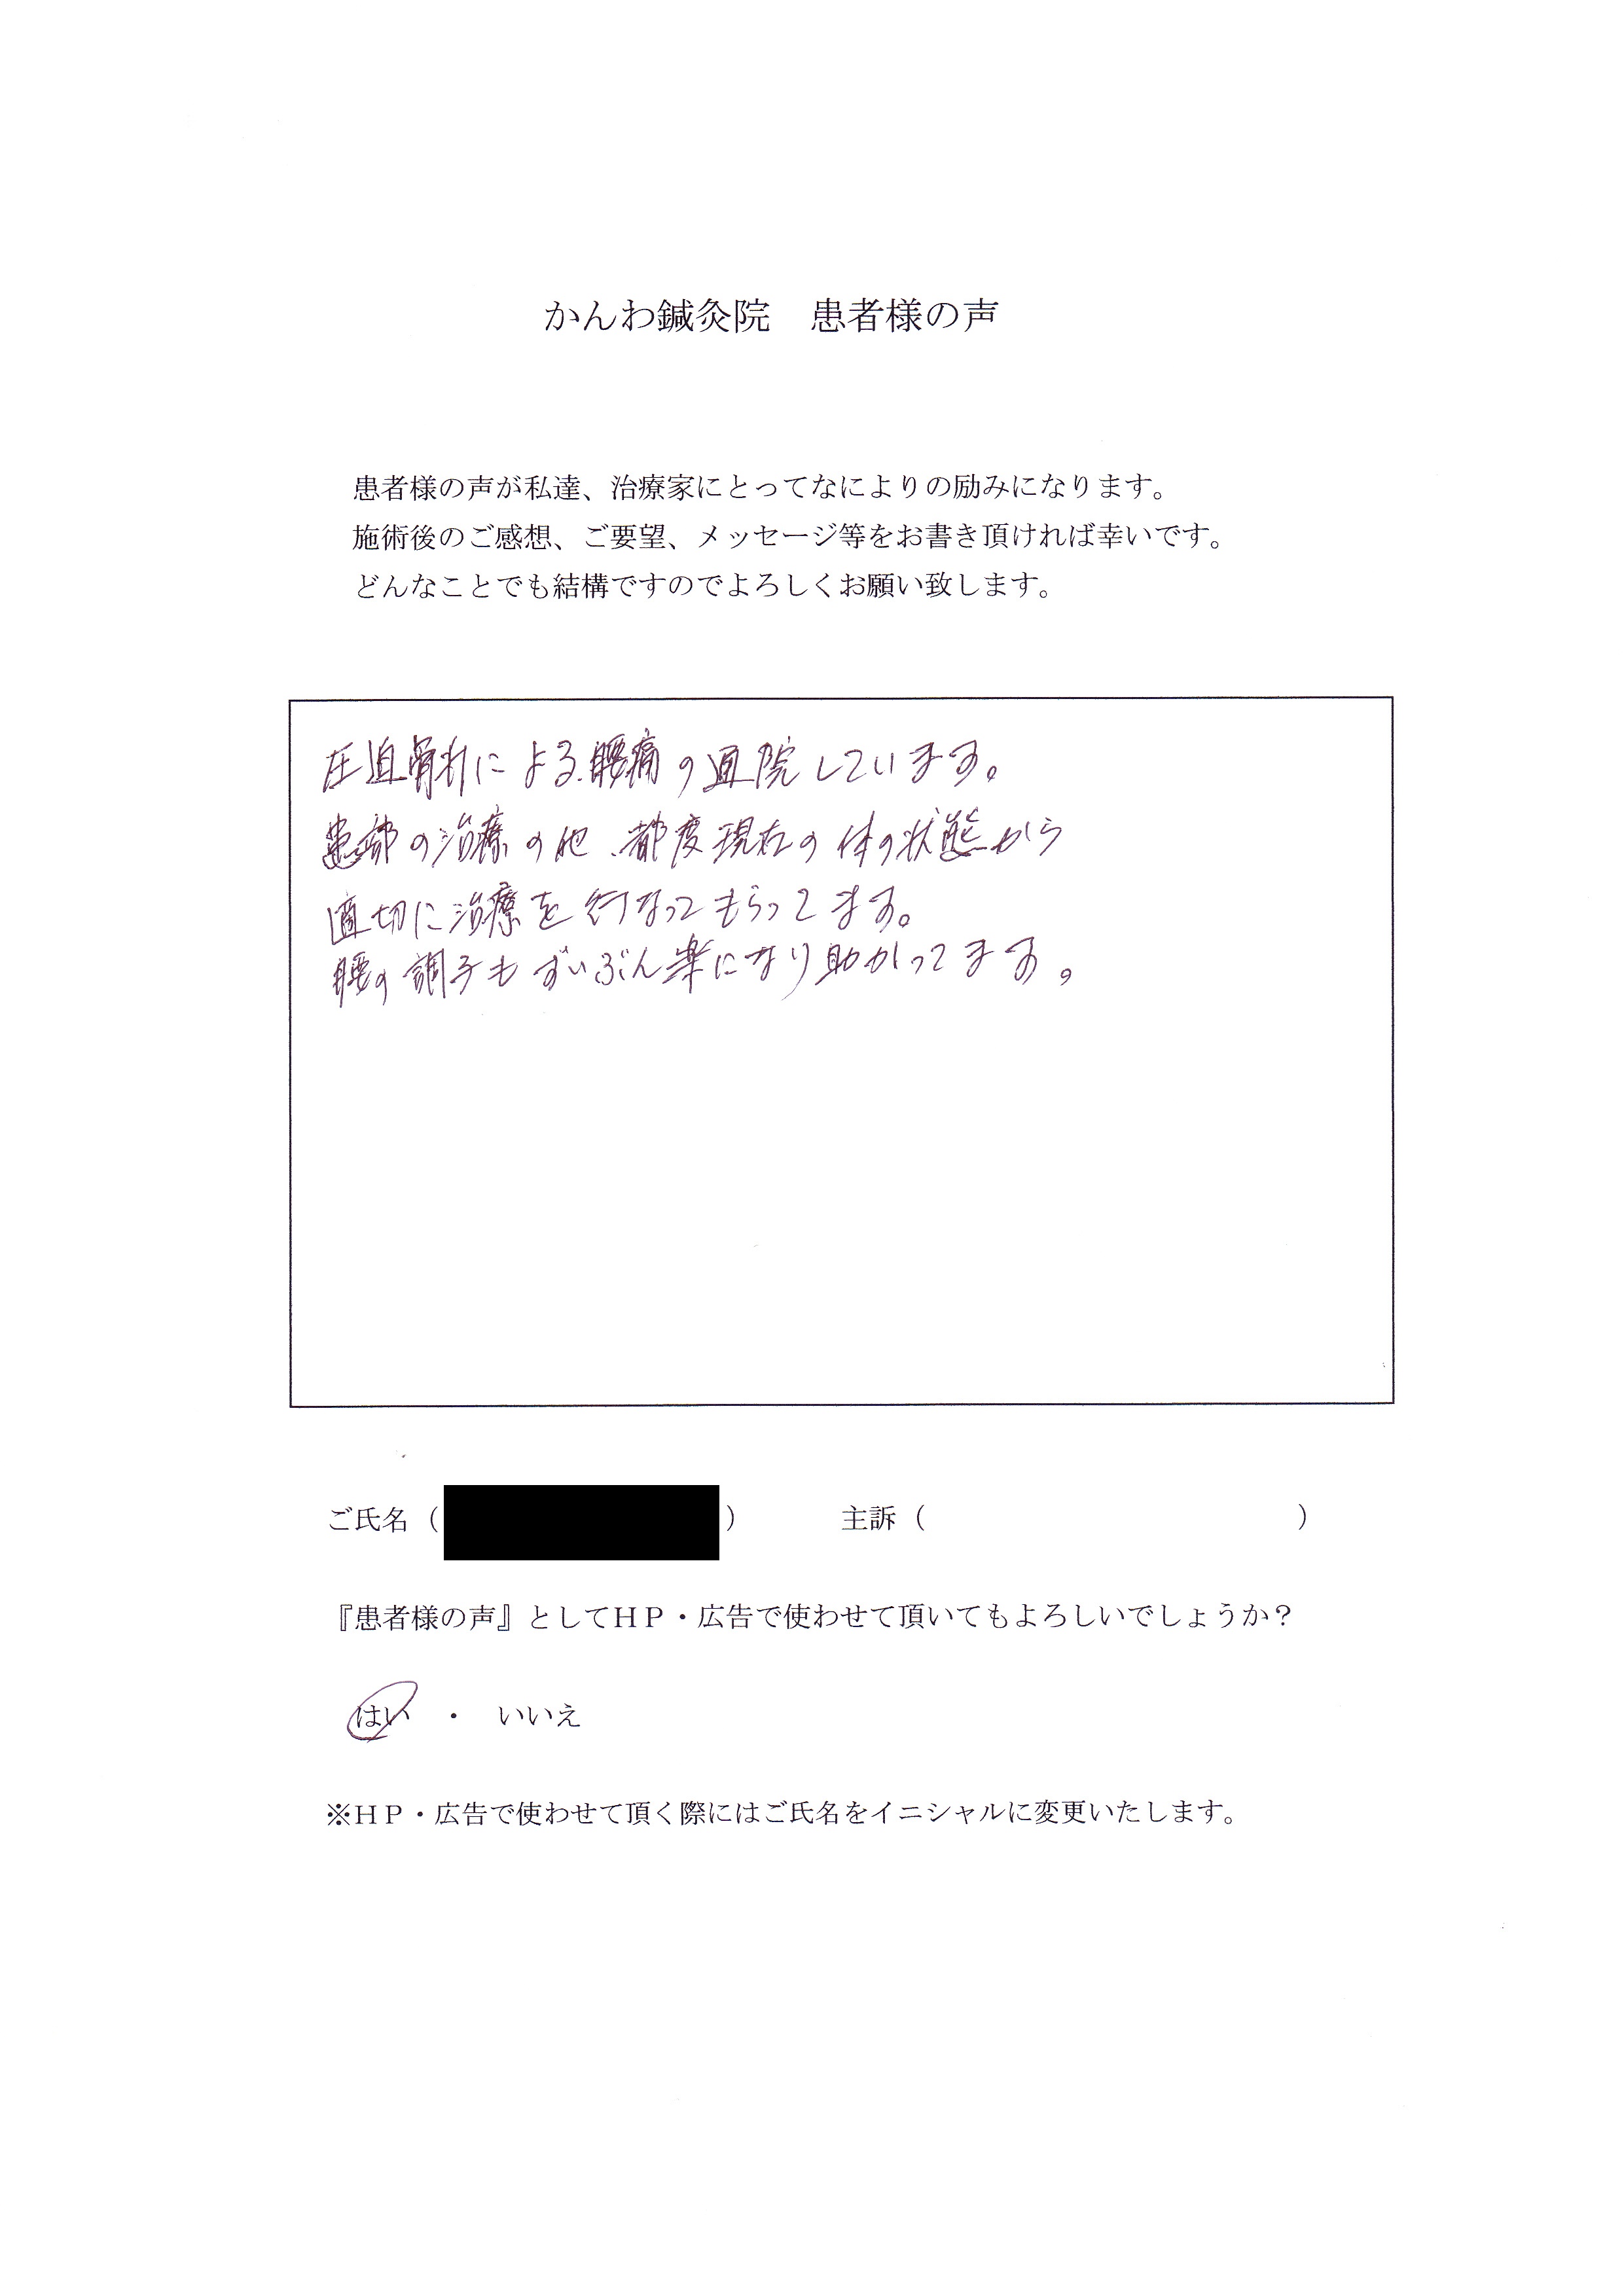 かんわ鍼灸院　患者様の声
患者様の声が私達、治療家にとってなによりの励みになります。
施術後のご感想、ご要望、メッセージ等をお書き頂ければ幸いです。
どんなことでも結構ですのでよろしくお願い致します。
圧迫骨折による腰痛の通院しています。
患部の治療の他、都度現在の体の状態から
適切に治療を行なってもらってます。
腰の調子もずいぶん楽になり助かってます。
ご氏名（　　　）　主訴（　　　）
『患者様の声』としてＨＰ・広告で使わせて頂いてもよろしいでしょうか？
はい　・　いいえ
※ＨＰ・広告で使わせて頂く際にはご氏名をイニシャルに変更いたします。